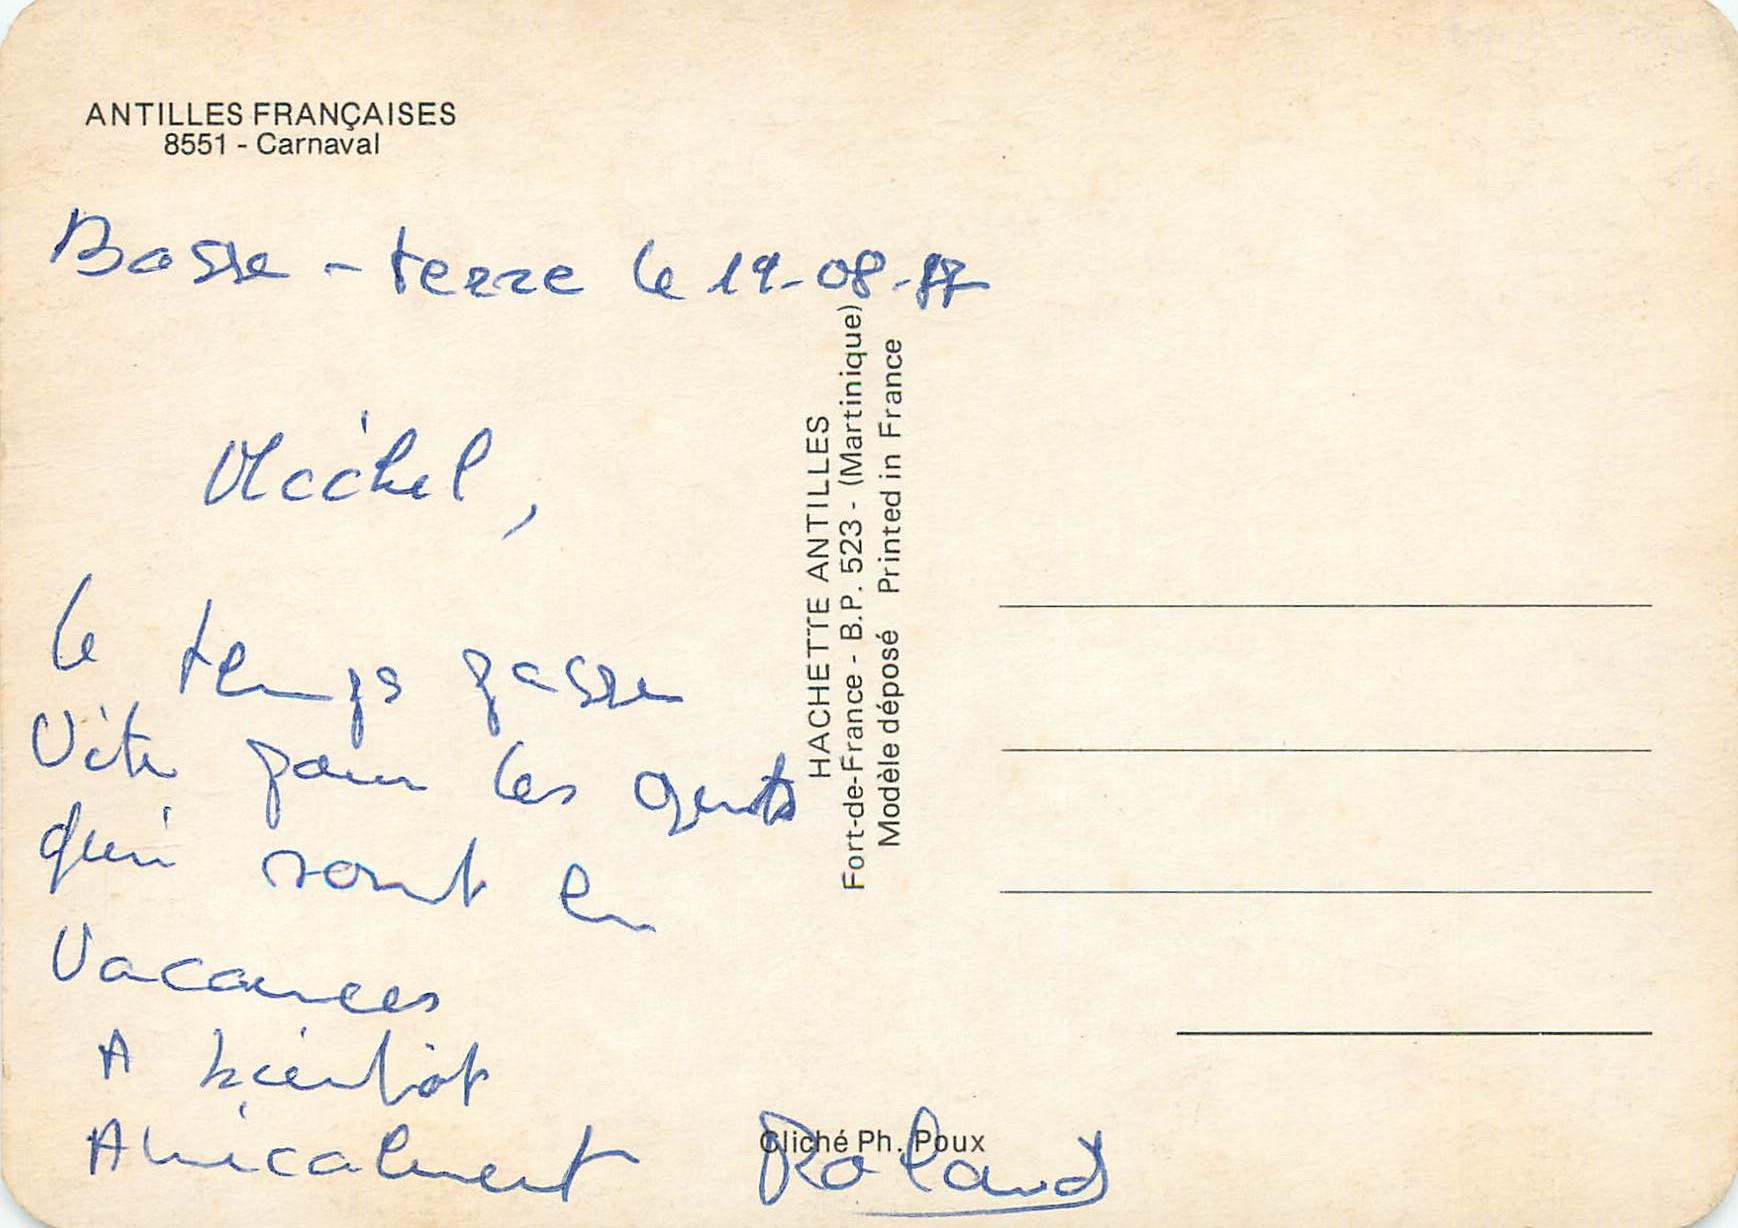 ANTILLES FRANÇAISES
8551 - Carnaval
Basse-terre le 19-08-87
Michel,
le temps passe
Vite pour les gents
qui sont en
Vacances
A bientôt
Amicalement Roland
HACHETTE ANTILLES
Fort-de-France - B.P. 523 - (Martinique)
Modèle déposé Printed in France
Cliché Ph. Poux